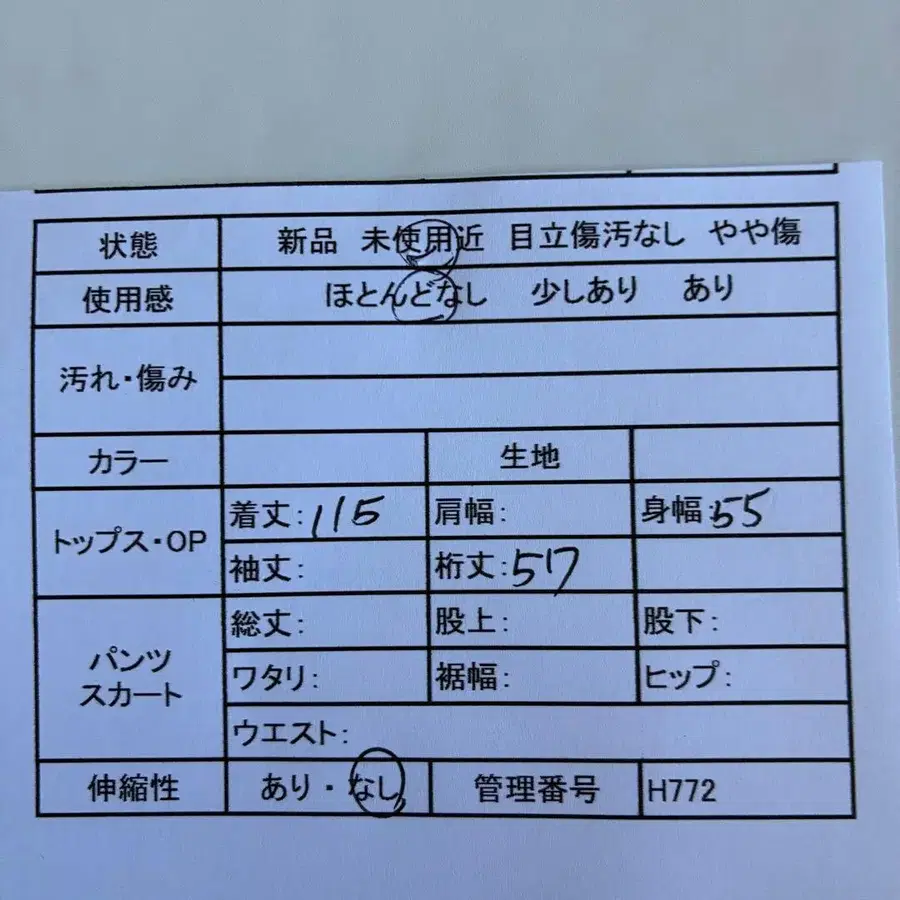 状態 新品 未使用近 目立傷汚なし やや傷
使用感 ほとんどなし 少しあり あり
汚れ・傷み
カラー 生地
トップス・OP 着丈:115 肩幅: 身幅:55
袖丈: 裄丈:57
パンツ
スカート
総丈: 股上: 股下:
ワタリ: 裾幅: ヒップ:
ウエスト:
伸縮性 あり・なし 管理番号 H772